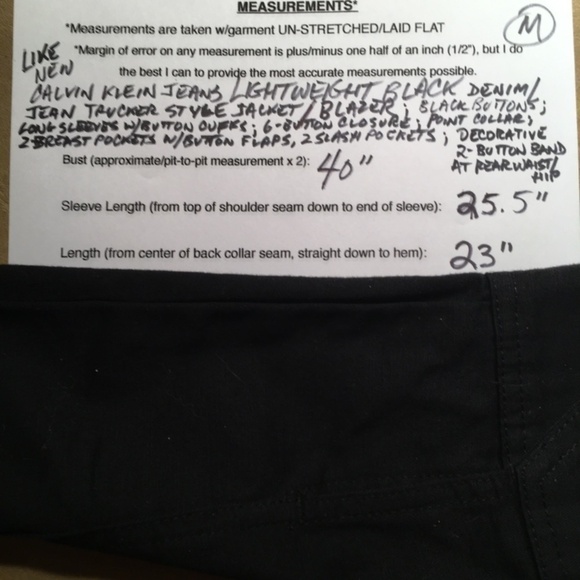 MEASUREMENTS*
*Measurements are taken w/garment UN-STRETCHED/LAID FLAT
M
*Margin of error on any measurement is plus/minus one half of an inch (1/2"), but I do
the best I can to provide the most accurate measurements possible.
LIKE
NEW
CALVIN KLEIN JEANS LIGHTWEIGHT BLACK DENIM/
JEAN TRUCKER STYLE JACKET/BLAZER; BLACK BUTTONS;
LONG SLEEVES W/BUTTON CUFFS; 6-BUTTON CLOSURE; POINT COLLAR;
2-BREAST POCKETS W/BUTTON FLAPS, 2 SLASH POCKETS; DECORATIVE
2-BUTTON BAND
AT REAR WAIST/
HIP
Bust (approximate/pit-to-pit measurement x 2): 40"
Sleeve Length (from top of shoulder seam down to end of sleeve): 25.5"
Length (from center of back collar seam, straight down to hem): 23"